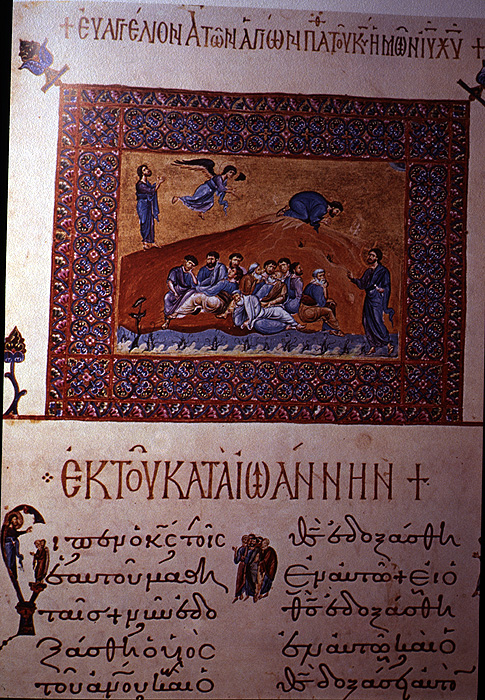 + ΕΥΑΓΓΕΛΙΟΝ Α ΤΩΝ ΑΓΙΩΝ ΠΑΘ ΤΟΥ Κ̅Υ̅ ΗΜΩΝ Ι̅Υ̅ Χ̅Υ̅ +
ἐΚ ΤΟῦ ΚΑΤᾺ ΙΩΆΝΝΗΝ +
εἶπεν ὁ κ̅ς̅ τοῖς
ἑαυτοῦ μαθη
ταῖς + νῦν ἐδο
ξάσθη ὁ υἱὸς
τοῦ ἀνου καὶ ὁ
θ̅ς̅ ἐδοξάσθη
ἐν αὐτῶ + εἰ ὁ
θ̅ς̅ ἐδοξάσθη
ἐν αὐτῶ καὶ ὁ